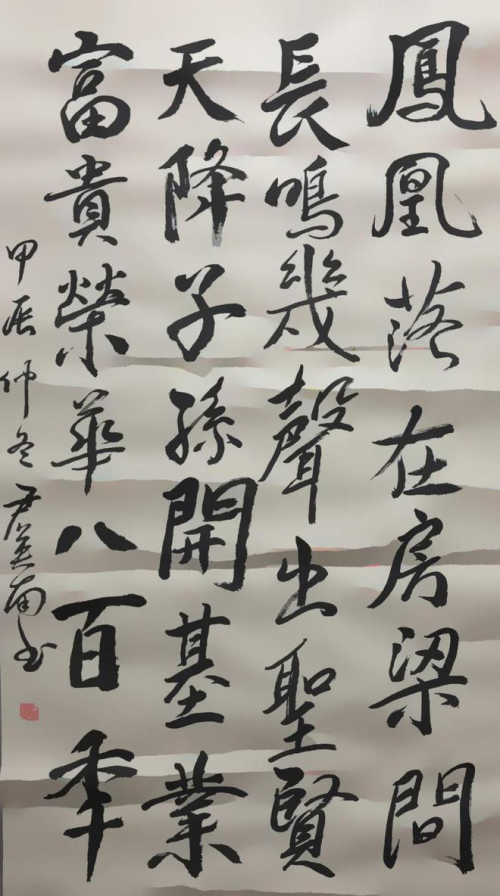 鳳凰落在房梁間
長鳴幾聲出聖賢
天降子孫開基業
富貴榮華八百季
甲辰仲冬尹英南书